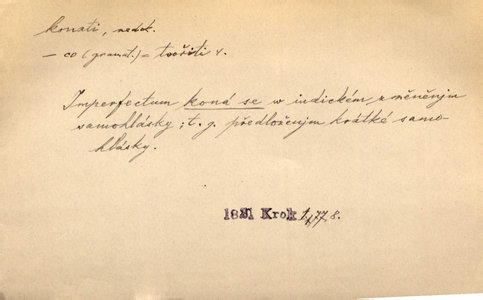 konati, nedok.
— co (gramat.) = tvořiti v.
Imperfectum koná se w indickém změněnjm
samohlásky; t. g. předloženjm krátké samo-
hlásky.
1821 Krok 1,77 8.